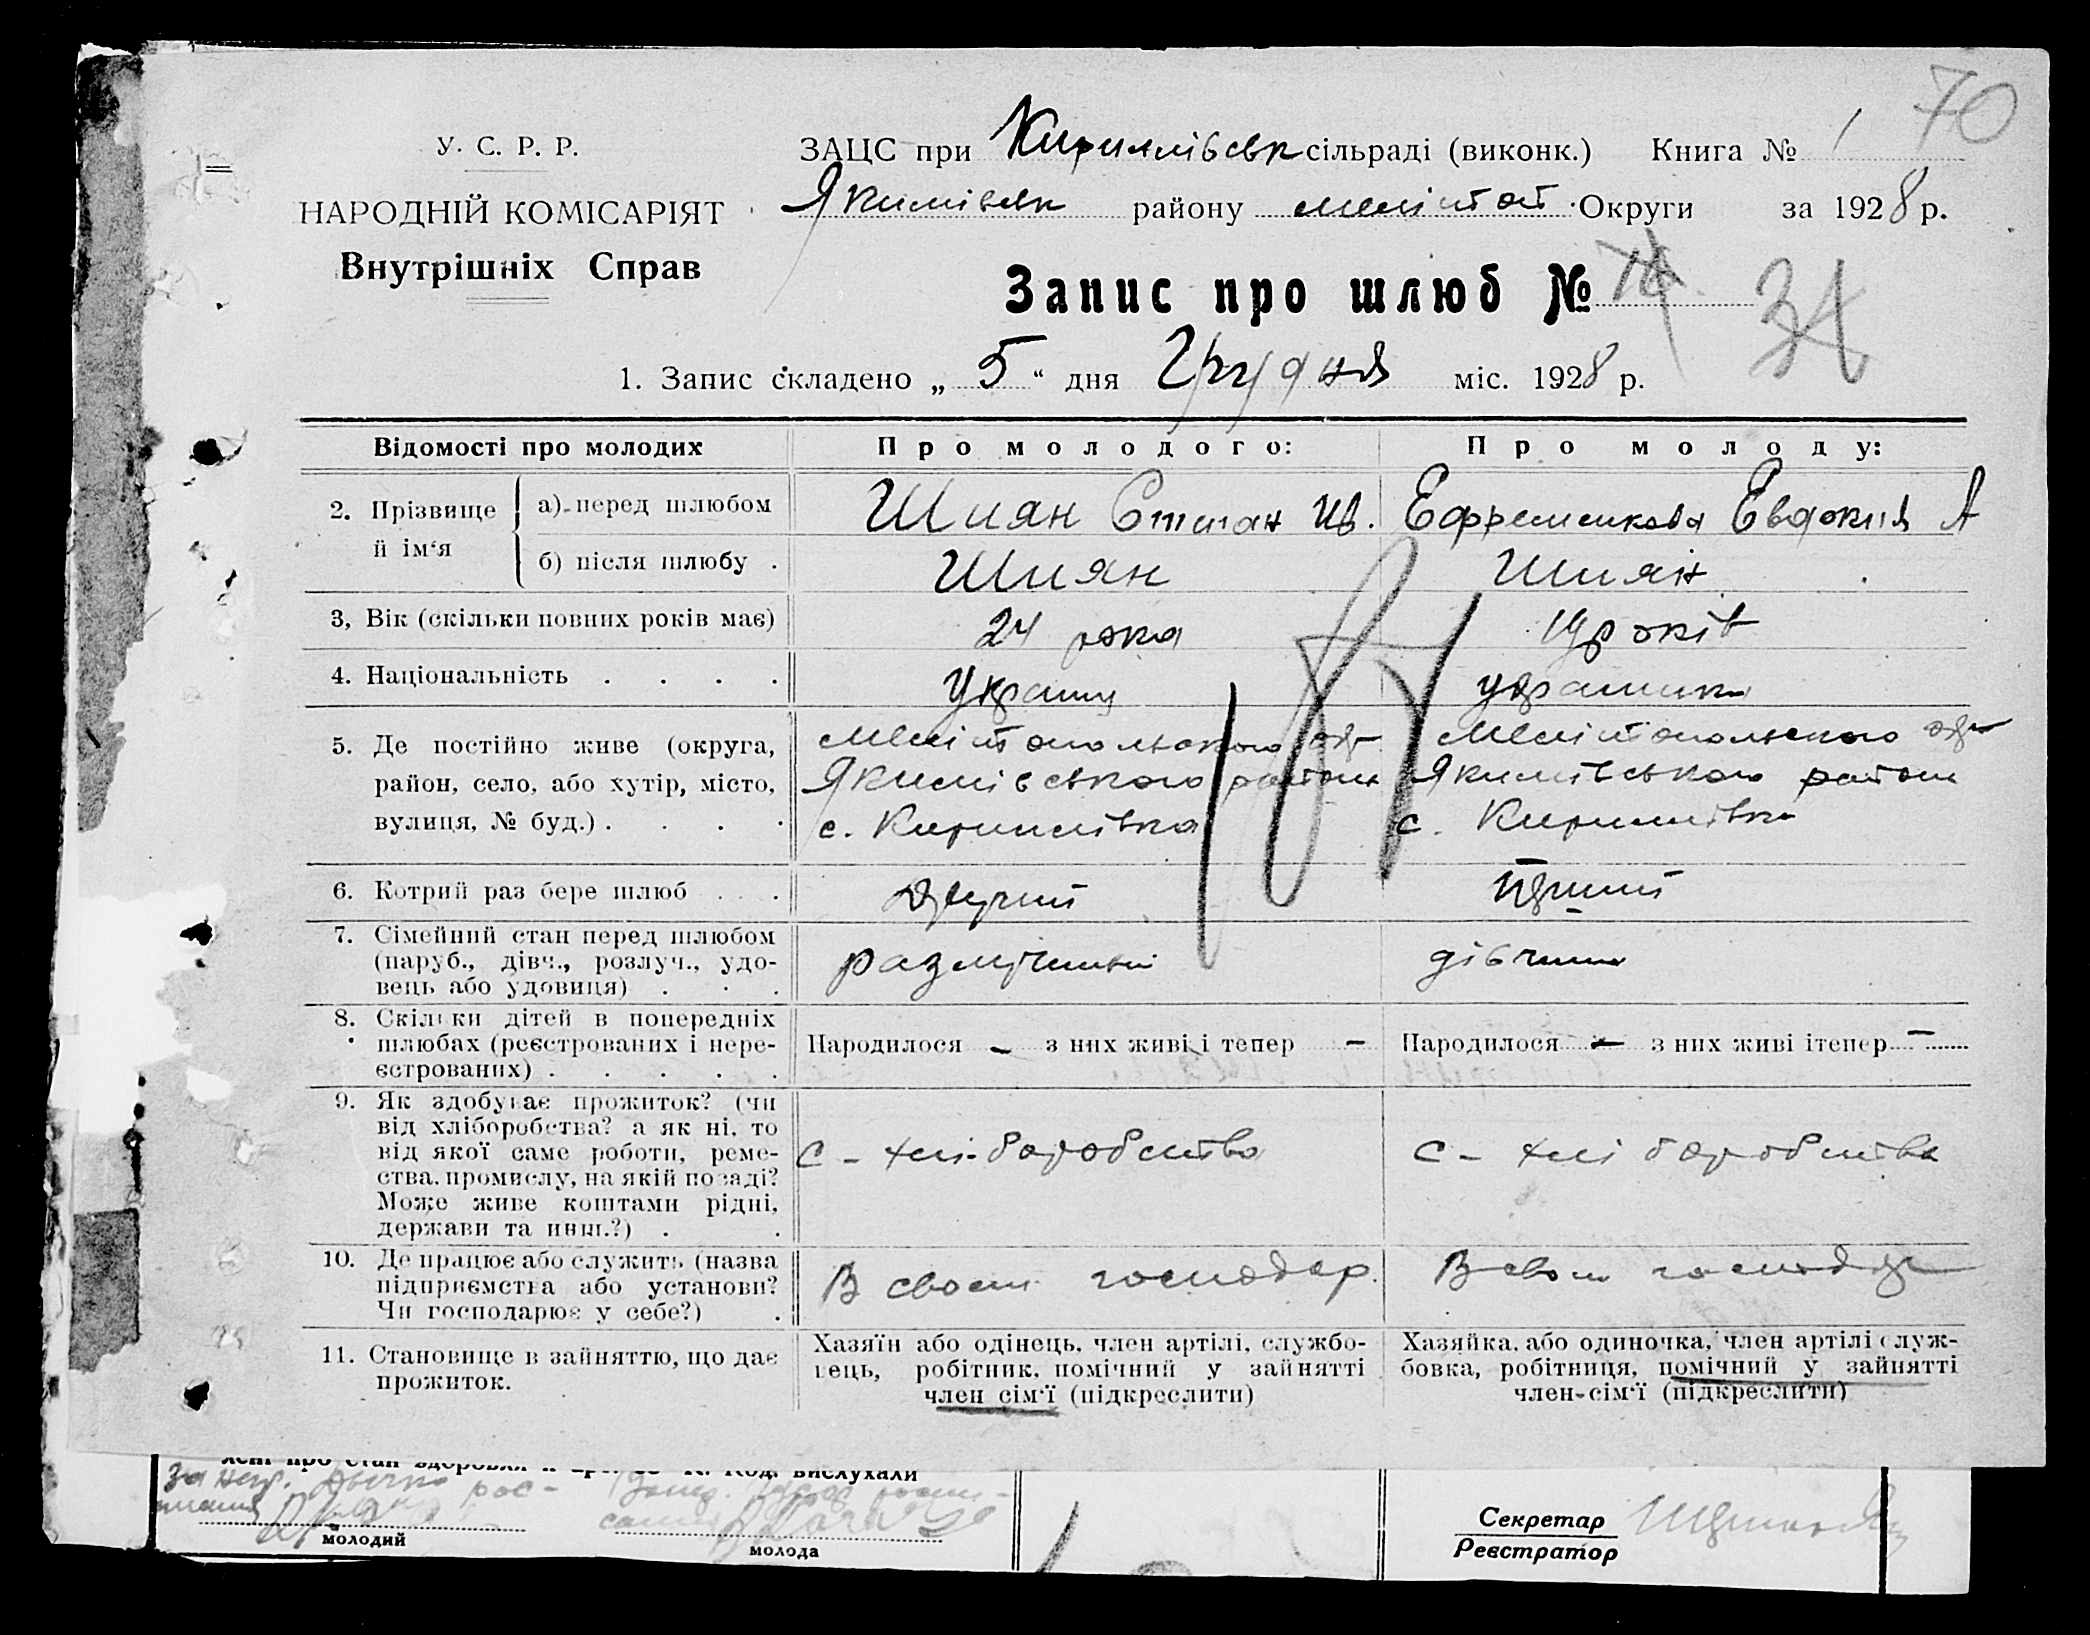 70
У. С. Р. Р.
НАРОДНІЙ КОМІСАРІЯТ
Внутрішніх Справ
ЗАЦС при Кириллівськ сільраді (виконк.) Книга № 1
Якимівськ району Мелітоп Округи за 1928 р.
Запис про шлюб № 34
1. Запис складено „ 5 “ дня Грудня міс. 1928 р.
Відомості про молодих
Про молодого:
Про молоду:
2. Прізвище й ім‘я
а) перед шлюбом
Шиян Степан Ив.
Ефременкова Евдокия А
б) після шлюбу .
Шиян
Шиян
3, Вік (скільки повних років має)
24 рока
19 років
4. Національність . . . .
Украинц
украинка
5. Де постійно живе (округа,
район, село, або хутір, місто,
вулиця, № буд.) . . . .
Мелітопольского окр
Якимівського района
с. Кирилівка
Мелітопольского окр
Якимівського района
с. Кирилівка
187
6. Котрий раз бере шлюб . . .
Другий
Перший
7. Сімейний стан перед шлюбом
(паруб., дівч., розлуч., удо-
вець або удовиця) . . .
разлучений
дівчина
8. Скільки дітей в попередніх
шлюбах (реєстрованих і нере-
єстрованих) . . . . .
Народилося – з них живі і тепер –
Народилося – з них живі ітепер –
9. Як здобуває прожиток? (чи
від хліборобства? а як ні, то
від якої саме роботи, реме-
ства, промислу, на якій посаді?
Може живе коштами рідні,
держави та инш.?) . .
С – хліборобства
С – хліборобства
10. Де працює або служить (назва
підприємства або установи?
Чи господарює у себе?) .
В своем господар.
В своем господар
11. Становище в зайняттю, що дає
прожиток.
Хазяїн або одінець, член артілі, службо-
вець, робітник, помічний у зайнятті
член сім‘ї (підкреслити)
Хазяйка, або одиночка, член артілі служ-
бовка, робітниця, помічний у зайнятті
член-сім‘ї (підкреслити)
вислухали
молодий
молода
Секретар
Реєстратор